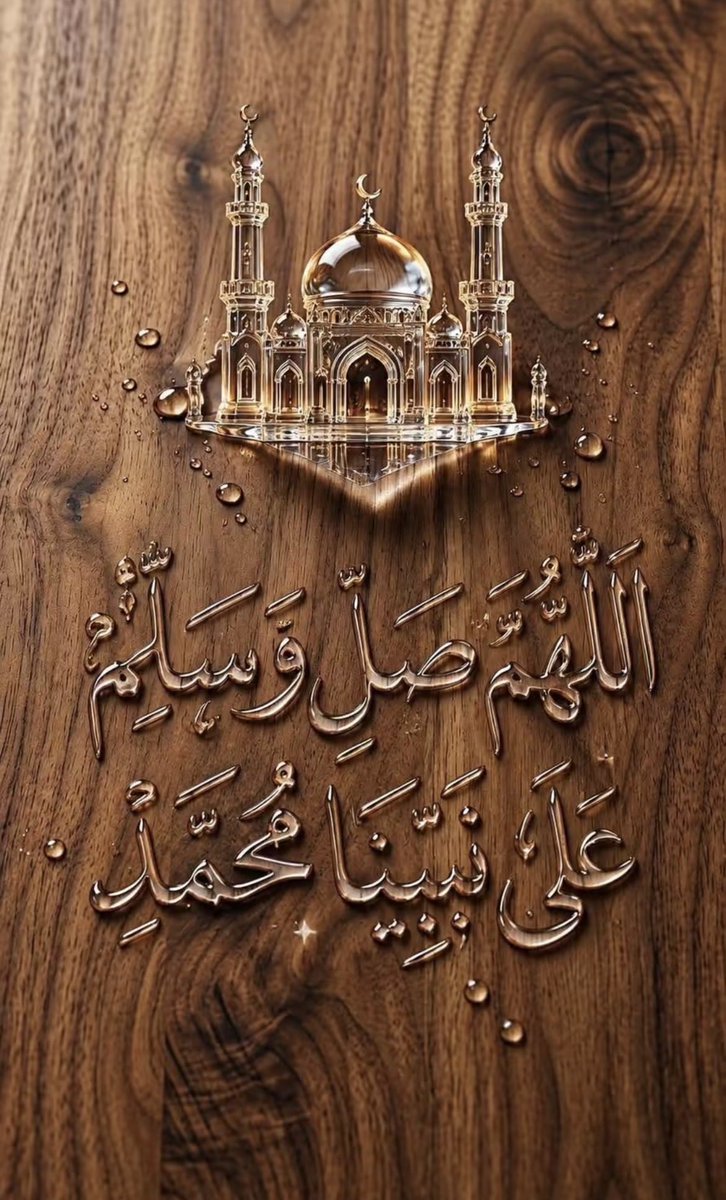 اَللّٰهُمَّ صَلِّ وَسَلِّمْ
عَلَى نَبِيِّنَا مُحَمَّدٍ